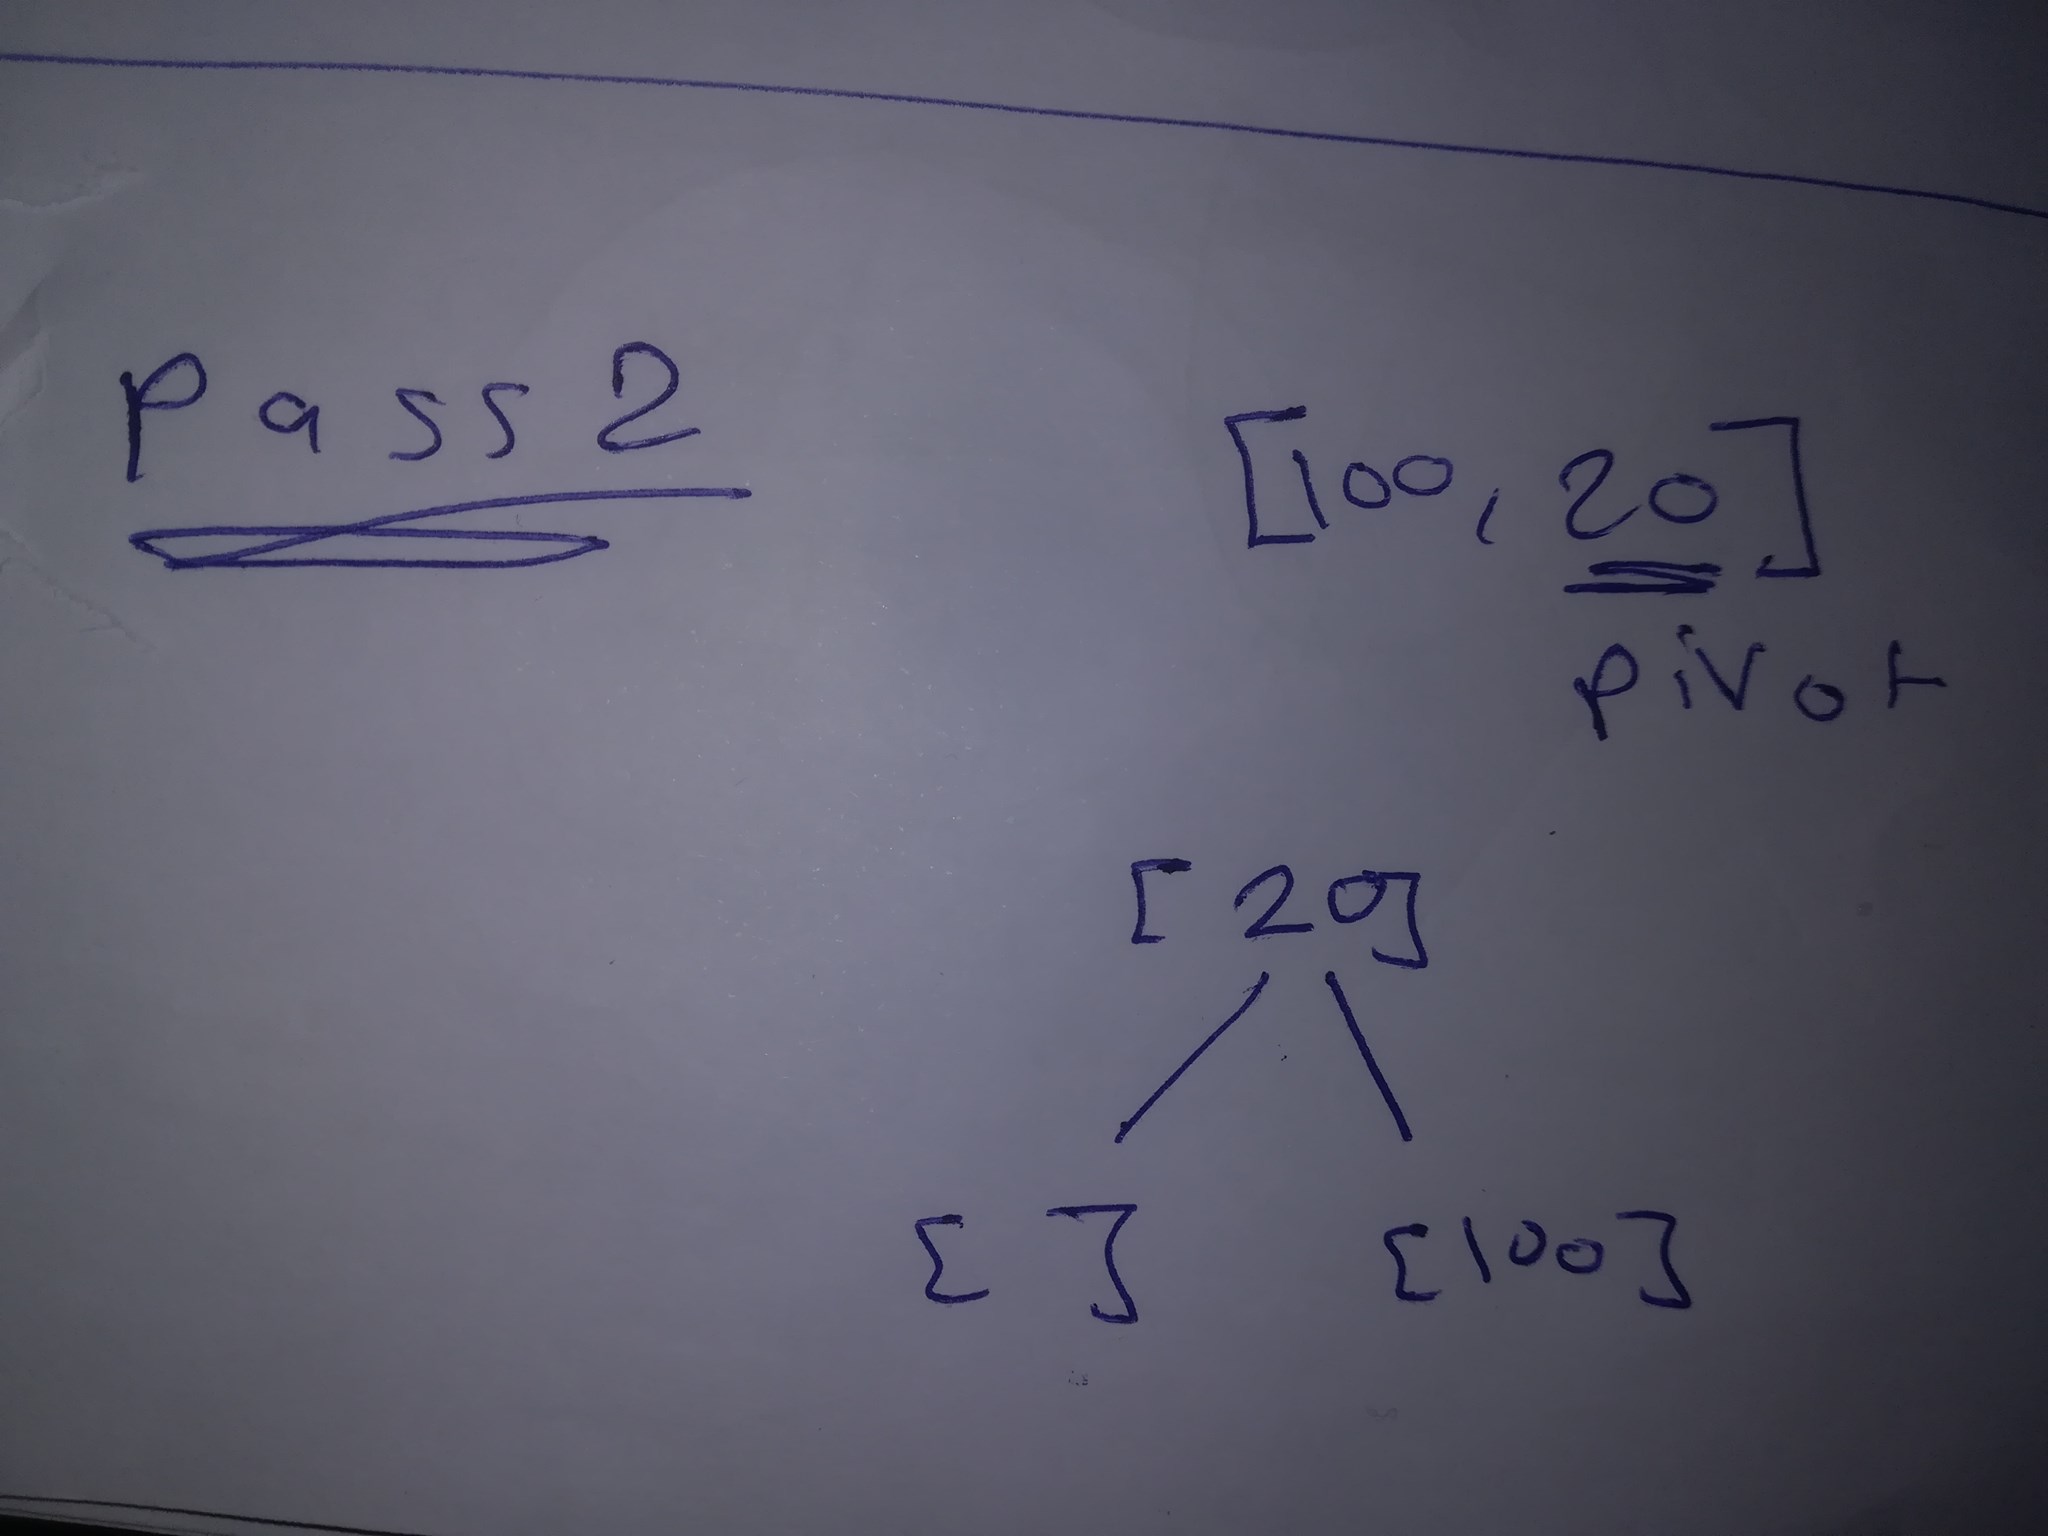 Pass 2
[100, 20]
pivot
[20]
[ ] [100]